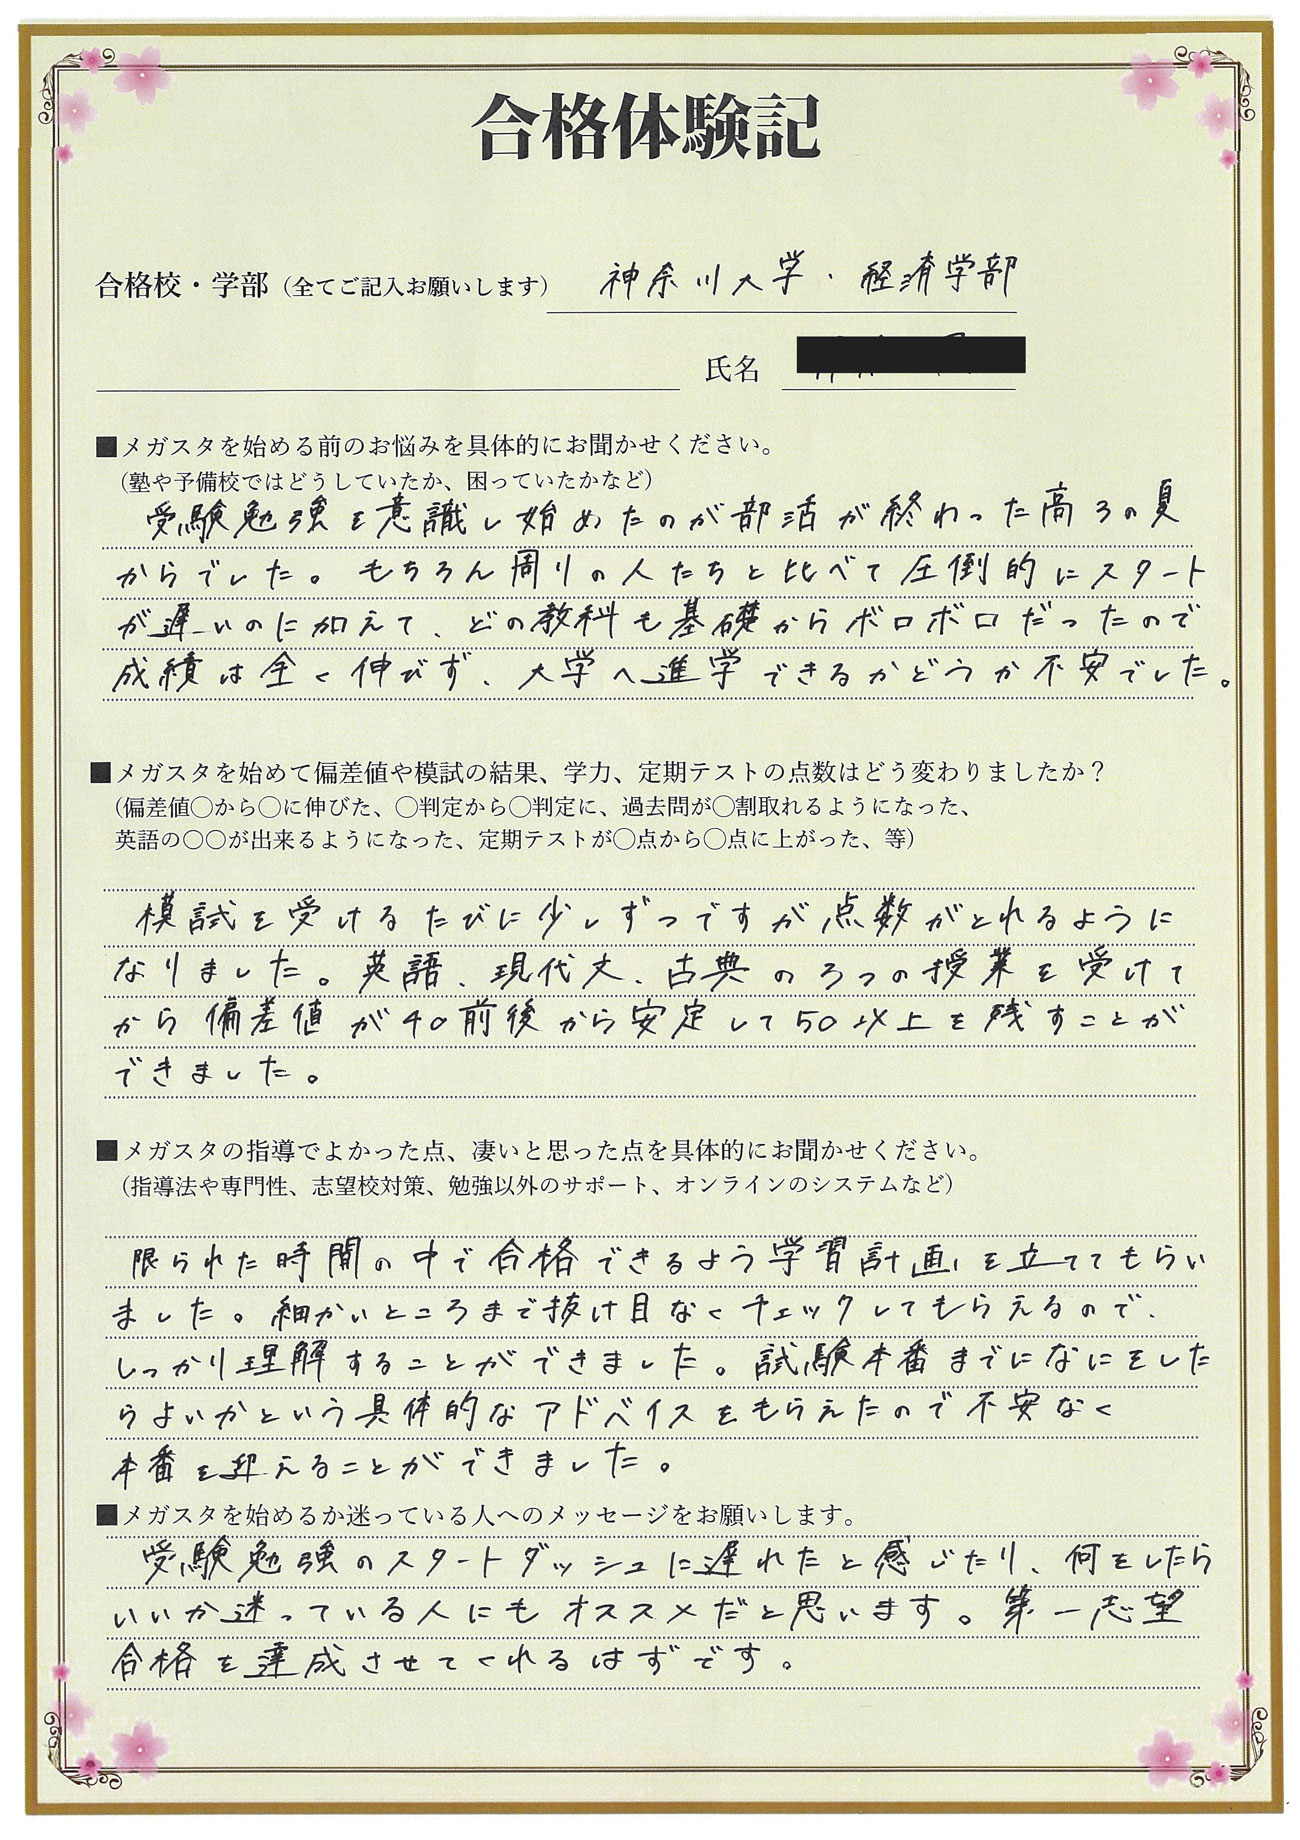 合格体験記
合格校・学部（全てご記入お願いします） 神奈川大学・経済学部
氏名
■メガスタを始める前のお悩みを具体的にお聞かせください。
（塾や予備校ではどうしていたか、困っていたかなど）
受験勉強を意識し始めたのが部活が終わった高3の夏
からでした。もちろん周りの人たちと比べて圧倒的にスタート
が遅いのに加えて、どの教科も基礎からボロボロだったので
成績は全く伸びず、大学へ進学できるかどうか不安でした。
■メガスタを始めて偏差値や模試の結果、学力、定期テストの点数はどう変わりましたか？
（偏差値○から○に伸びた、○判定から○判定に、過去問が○割取れるようになった、
英語の○○が出来るようになった、定期テストが○点から○点に上がった、等）
模試を受けるたびに少しずつですが点数がとれるように
なりました。英語、現代文、古典の3つの授業を受けて
から偏差値が40前後から安定して50以上を残すことが
できました。
■メガスタの指導でよかった点、凄いと思った点を具体的にお聞かせください。
（指導法や専門性、志望校対策、勉強以外のサポート、オンラインのシステムなど）
限られた時間の中で合格できるよう学習計画を立ててもらい
ました。細かいところまで抜け目なくチェックしてもらえるので、
しっかり理解することができました。試験本番までになにをした
らよいかという具体的なアドバイスをもらえたので不安なく
本番を迎えることができました。
■メガスタを始めるか迷っている人へのメッセージをお願いします。
受験勉強のスタートダッシュに遅れたと感じたり、何をしたら
いいか迷っている人にもオススメだと思います。第一志望
合格を達成させてくれるはずです。